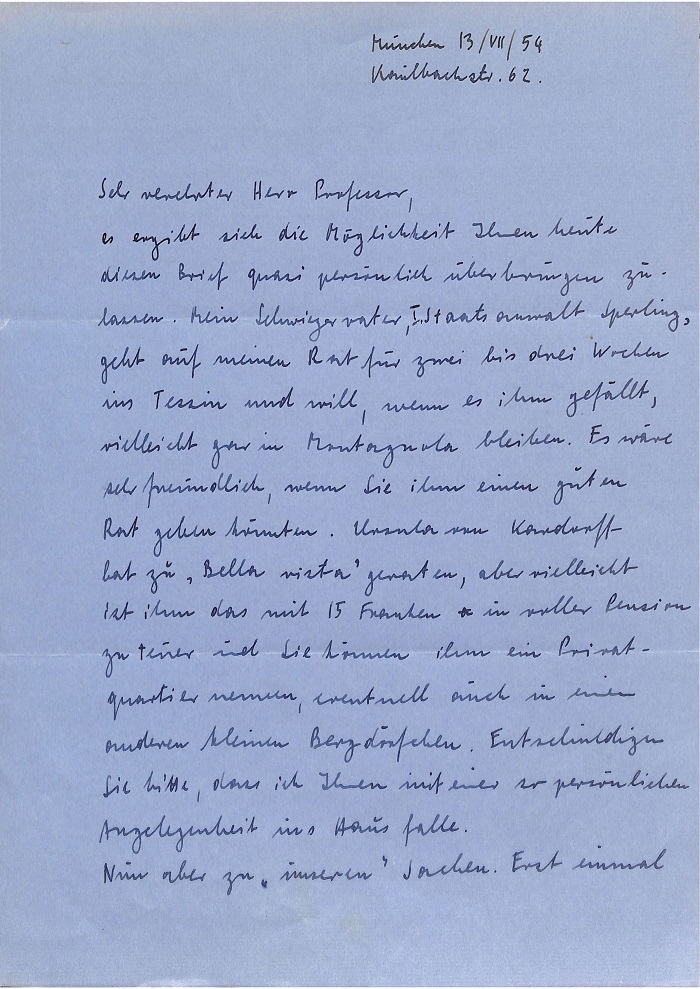 München 13/VII/54
Kaulbachstr. 62.
Sehr verehrter Herr Professor,
es ergibt sich die Möglichkeit Ihnen heute
diesen Brief quasi persönlich überbringen zu-
lassen. Mein Schwiegervater, I. Staatsanwalt Sperling,
geht auf meinen Rat für zwei bis drei Wochen
ins Tessin und will, wenn es ihm gefällt,
vielleicht gar in Montagnola bleiben. Es wäre
sehr freundlich, wenn Sie ihm einen guten
Rat geben könnten. Ursula von Kardorff
hat zu „Bella vista" geraten, aber vielleicht
ist ihm das mit 15 Franken in voller Pension
zu teuer und Sie können ihm ein Privat-
quartier nennen, eventuell auch in einem
anderen kleinen Bergdörfchen. Entschuldigen
Sie bitte, dass ich Ihnen mit einer so persönlichen
Angelegenheit ins Haus falle.
Nun aber zu „unseren" Sachen. Erst einmal